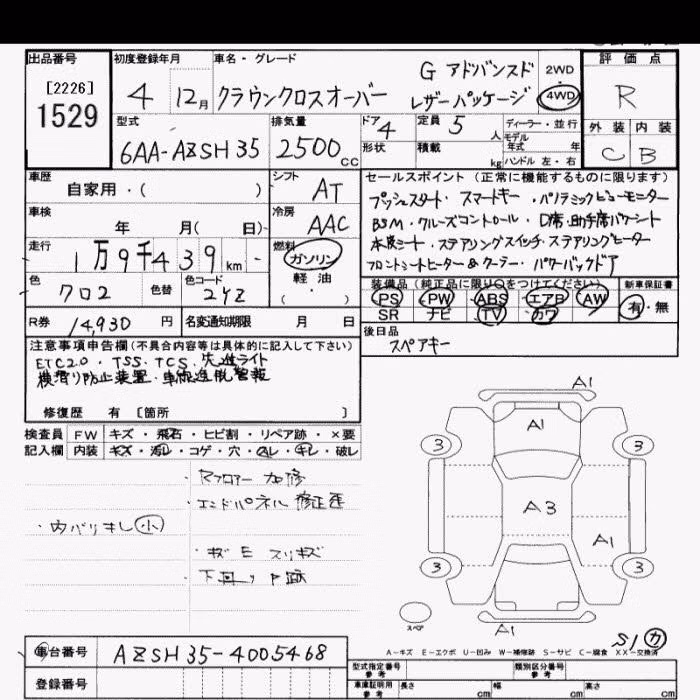 出品番号
[2226]
1529
初度登録年月
4 12月
車名・グレード
クラウンクロスオーバー
G アドバンスド
レザーパッケージ
2WD
4WD
評価点
R
外装 内装
C B
型式
6AA-AZSH35
排気量
2500cc
ドア 4
定員 5人
形状
積載 kg
ディーラー・並行
モデル年式 年式
ハンドル 左・右
車歴
自家用・( )
シフト
AT
車検
年 月( 日)
冷房
AAC
走行
1万9千439km
燃料
ガソリン
軽油
( ・ )
色
クロ2
色替
色コード
2YZ
R券 14,930円
名変通知期限 月 日
セールスポイント(正常に機能するものに限ります)
プッシュスタート・スマートキー・パノラミックビューモニター
BSM・クルーズコントロール・D席・助手席パワーシート
本皮シート・ステアリングスイッチ・ステアリングヒーター
フロントシートヒーター&クーラー・パワーバックドア
装備品(純正品に限り○をつけてください)
PS PW ABS エアB AW
SR ナビ TV カワ
新車保証書
有・無
後日品
スペアキー
注意事項申告欄(不具合内容等は具体的に記入して下さい)
ETC2.0・TSS・TCS・先進ライト
横滑り防止装置・車線逸脱警報
修復歴 有 [箇所 ]
検査員
記入欄
FW キズ・飛石・ヒビ割・リペア跡・×要
内装 キズ・汚レ・コゲ・穴・スレ・キレ・破レ
・Rフロアー 加修
・エンドパネル 修正歪
・内バリキレ(小)
・キズE スリキズ
下廻り P跡
A1
A1
3
3
A3
A1
3
3
スペア
A1
S1 カ
A-キズ E-エクボ U-凹み W-補修跡 S-サビ C-腐食 XX-交換済
車台番号 AZSH35-4005468
登録番号
型式指定番号
参考
類別区分番号
参考
車庫証明用
参考
長さ cm 幅 cm 高さ cm